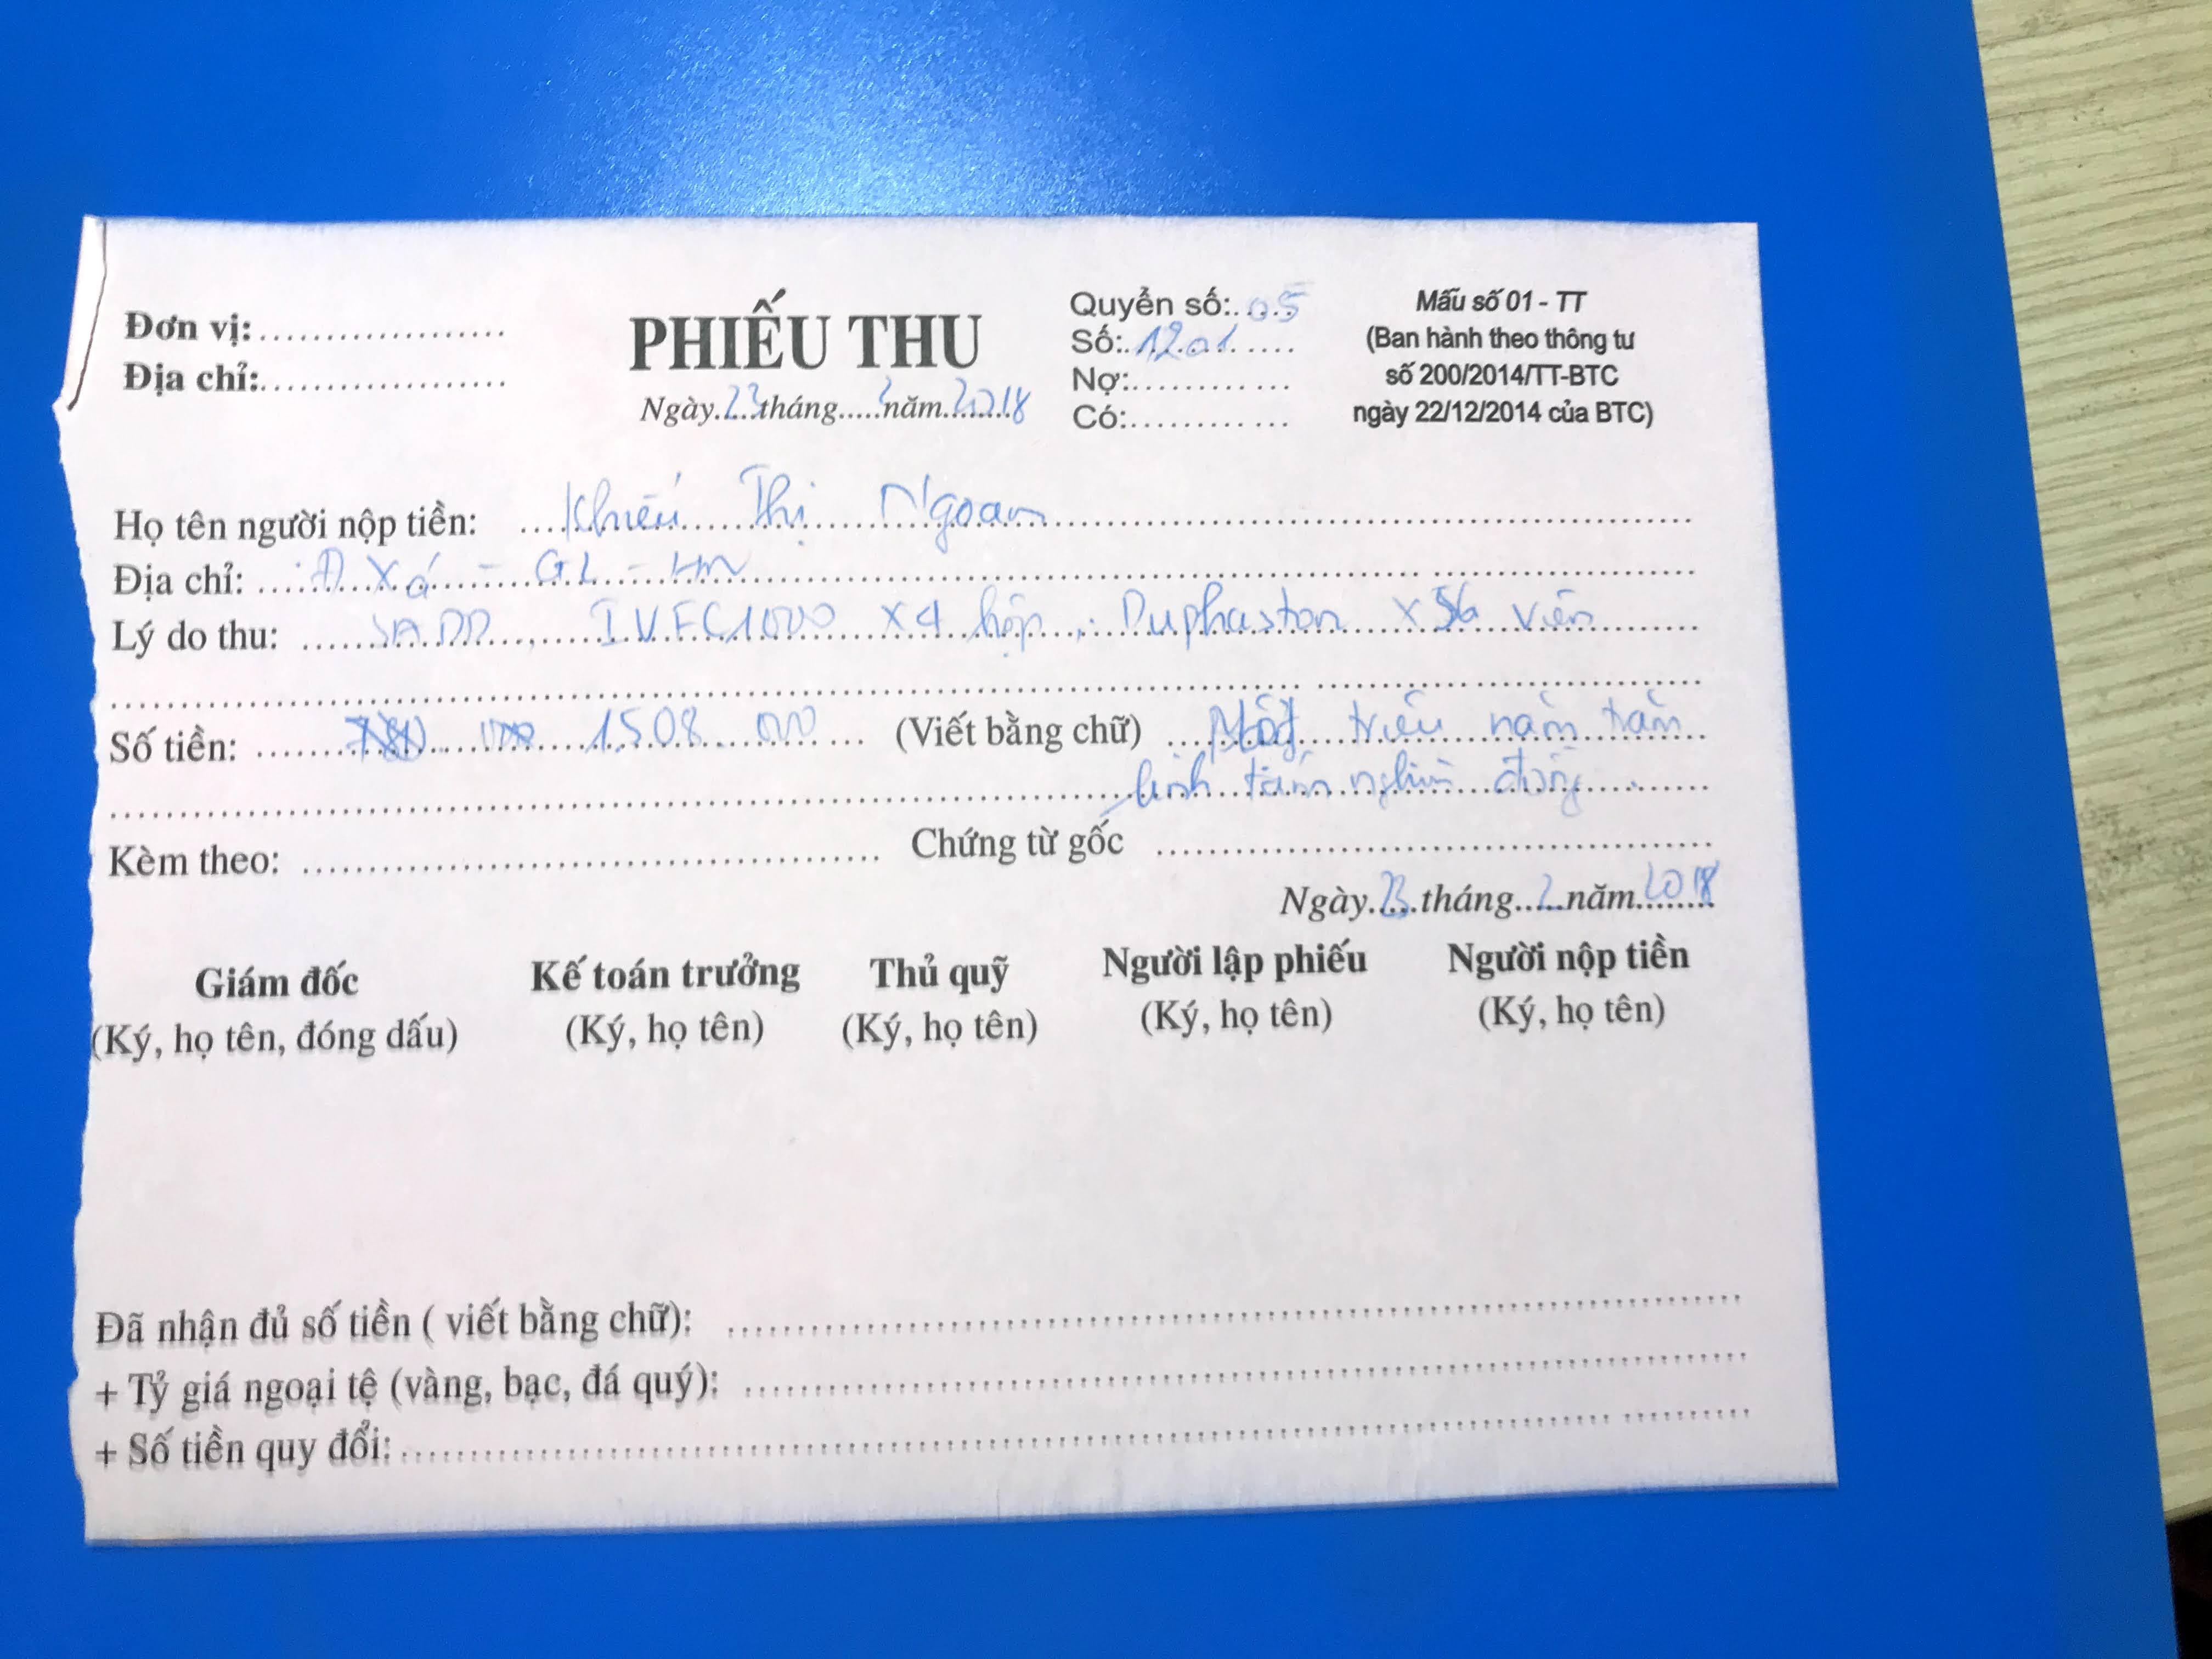 Đơn vị:..................
Địa chỉ:...................
PHIẾU THU
Ngày 23 tháng 2 năm 2018
Quyển số: 05
Số: 1201
Nợ:...............
Có:...............
Mẫu số 01 - TT
(Ban hành theo thông tư
số 200/2014/TT-BTC
ngày 22/12/2014 của BTC)
Họ tên người nộp tiền: Khiếu Thị Ngoan
Địa chỉ: Đ Xá - GL - HN
Lý do thu: IVFC1000 x 4 hộp, Duphaston x 56 viên
Số tiền: 1.508.000 (Viết bằng chữ) Một triệu năm trăm
linh tám nghìn đồng
Kèm theo: ............... Chứng từ gốc ...............
Ngày 23 tháng 2 năm 2018
Giám đốc Kế toán trưởng Thủ quỹ Người lập phiếu Người nộp tiền
(Ký, họ tên, đóng dấu) (Ký, họ tên) (Ký, họ tên) (Ký, họ tên) (Ký, họ tên)
Đã nhận đủ số tiền ( viết bằng chữ): ...............
+ Tỷ giá ngoại tệ (vàng, bạc, đá quý): ...............
+ Số tiền quy đổi:...............